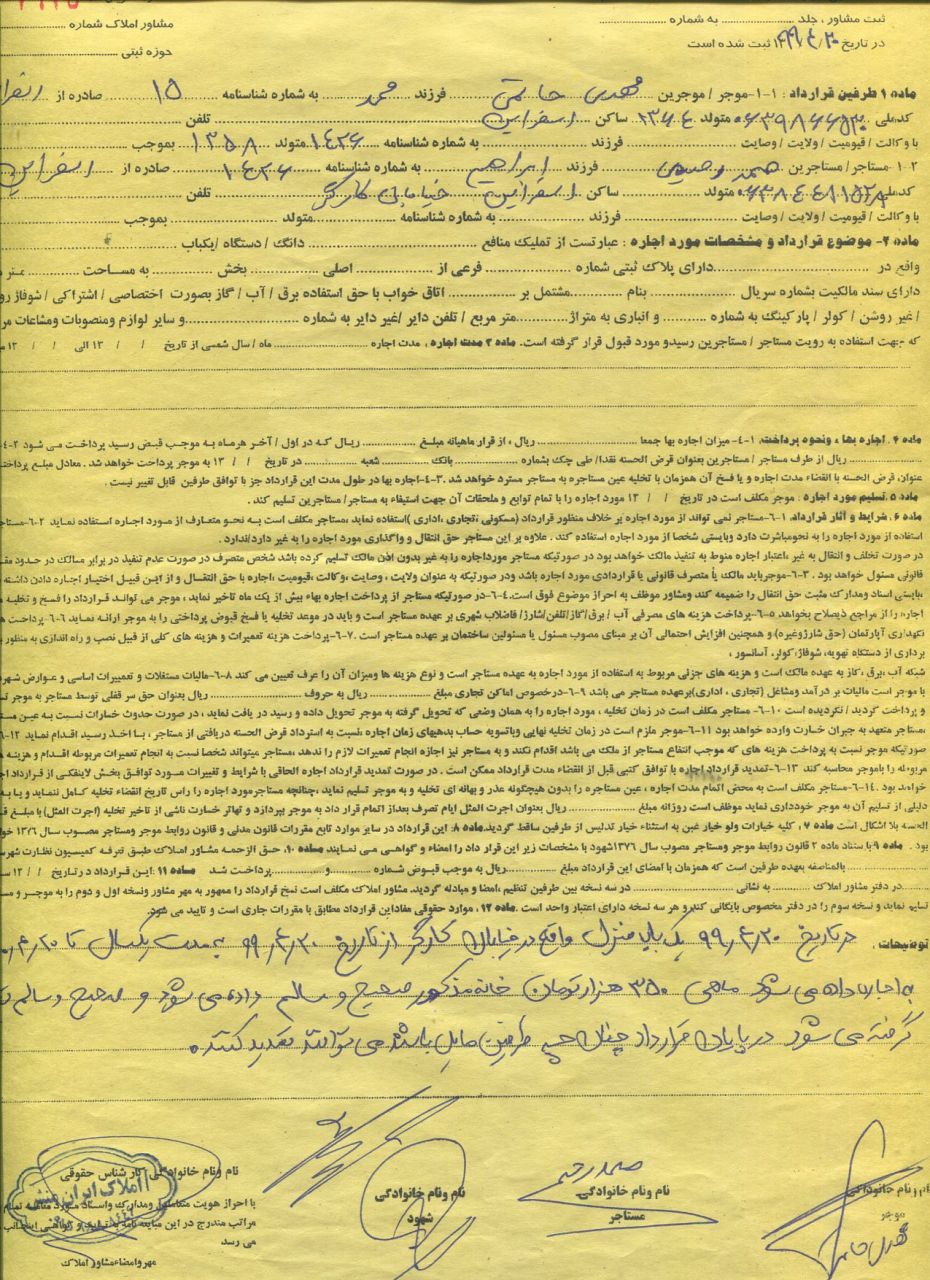 ثبت مشاور ، جلد ........ به شماره ........
در تاریخ ۹۹/۴/۳۰ ۱۳ ثبت شده است
مشاور املاک شماره
حوزه ثبتی
ماده ۱ طرفین قرارداد : ۱-۱-موجر / موجرین مهدی حاتمی فرزند محمد به شماره شناسنامه ۱۵ صادره از
کدملی متولد ۱۳۶۴ ساکن اسفراین تلفن
با وکالت / قیومیت / ولایت / وصایت فرزند به شماره شناسنامه ۱۴۳۶ متولد ۱۳۵۸ بموجب
۱-۲- مستاجر / مستاجرین صمد رحیمی فرزند ابراهیم به شماره شناسنامه ۱۴۳۶ صادره از اسفراین
کدملی متولد ساکن اسفراین خیابان کارگر تلفن
با وکالت / قیومیت / ولایت / وصایت فرزند به شماره شناسنامه متولد بموجب
ماده ۲- موضوع قرارداد و مشخصات مورد اجاره : عبارتست از تملیک منافع ........ دانگ / دستگاه / یکباب
واقع در ........ دارای پلاک ثبتی شماره ........ فرعی از ........ اصلی ........ بخش ........ به مساحت ........ متر
دارای سند مالکیت بشماره سریال ........ بنام ........ مشتمل بر ........ اتاق خواب با حق استفاده برق / آب / گاز بصورت اختصاصی / اشتراکی / شوفاژ
/ غیر روشن / کولر / پارکینگ به شماره ........ و انباری به متراژ ........ متر مربع / تلفن دایر /غیر دایر به شماره ........ و سایر لوازم ومنصوبات ومشاعات
که جهت استفاده به رویت مستاجر / مستاجرین رسیدو مورد قبول قرار گرفته است. ماده ۳ مدت اجاره ، مدت اجاره ........ ماه / سال شمسی از تاریخ / / ۱۳ الی / / ۱۳
ماده ۴ . اجاره بها ، ونحوه پرداخت. ۱-۴- میزان اجاره بها جمعا ........ ریال ، از قرار ماهیانه مبلغ ........ ریال که در اول / آخر هرماه به موجب قبض رسید پرداخت می شود ۲-۴
........ ریال از طرف مستاجر / مستاجرین بعنوان قرض الحسنه نقدا/ طی چک بشماره ........ بانک ........ شعبه ........ در تاریخ / / ۱۳ به موجر پرداخت خواهد شد . معادل مبلغ
عنوان، قرض الحسنه با انقضاء مدت اجاره و یا فسخ آن همزمان با تخلیه عین مستاجره به مستاجر مسترد خواهد شد .۳-۴-اجاره بها در طول مدت این قرارداد جز با توافق طرفین قابل تغییر نیست .
ماده ۵. تسلیم مورد اجاره : موجر مکلف است در تاریخ / / ۱۳ مورد اجاره را با تمام توابع و ملحقات آن جهت استیفاء به مستاجر/ مستاجرین تسلیم کند .
ماده ۶ . شرایط و آثار قرارداد. ۱-۶-مستاجر نمی تواند از مورد اجاره بر خلاف منظور قرارداد (مسکونی ،تجاری ،اداری )استفاده نماید ،مستاجر مکلف است به نحو متعارف از مورد اجاره استفاده نماید ۲-۶-
استفاده از مورد اجاره را به نحومباشرت دارد وبایستی شخصا از مورد اجاره استفاده کند . علاوه بر این مستاجر حق انتقال و واگذاری مورد اجاره را به غیر دارد/ندارد.
در صورت تخلف و انتقال به غیر ،اعتبار اجاره منوط به تنفیذ مالک خواهد بود در صورتیکه مستاجر مورداجاره را به غیر بدون اذن مالک تسلیم کرده باشد شخص متصرف در صورت عدم تنفیذ در برابر مالک در حدود
قانونی مسئول خواهد بود . ۳-۶-موجرباید مالک یا متصرف قانونی یا قراردادی مورد اجاره باشد ودر صورتیکه به عنوان ولایت ، وصایت ،وکالت ،قیومیت ،اجاره با حق انتقال و از این قبیل اختیار اجاره دادن داشته
بایستی اسناد ومدارک مثبت حق انتقال را ضمیمه کند ومشاور موظف به احراز موضوع فوق است.۴-۶-در صورتیکه مستاجر از پرداخت اجاره بهاء بیش از یک ماه تاخیر نماید ، موجر می تواند قرارداد را فسخ و تخلیه
اجاره را از مراجع ذیصلاح بخواهد .۵-۶-پرداخت هزینه های مصرفی آب / برق/گاز/تلفن/شارژ/ فاضلاب شهری بر عهده مستاجر است و باید در موعد تخلیه یا فسخ قبوض پرداختی را به موجر ارائه نماید ۶-۶-پرداخت
نگهداری آپارتمان (حق شارژوغیره) و همچنین افزایش احتمالی آن بر مبنای مصوب مسئول یا مسئولین ساختمان بر عهده مستاجر است .۷-۶-پرداخت هزینه تعمیرات و هزینه های کلی از قبیل نصب و راه اندازی به منظور
برداری از دستگاه تهویه، شوفاژ،کولر، آسانسور ،
شبکه آب ،برق ،گاز به عهده مالک است و هزینه های جزئی مربوط به استفاده از مورد اجاره به عهده مستاجر است و نوع هزینه ها ومیزان آن را عرف تعیین می کند .۸-۶-مالیات مستغلات و تعمیرات اساسی و عوارض
با موجر است مالیات بر درآمد ومشاغل (تجاری ، اداری)برعهده مستاجر می باشد .۹-۶-درخصوص اماکن تجاری مبلغ ........ ریال به حروف ........ ریال بعنوان حق سر قفلی توسط مستاجر به موجر
و پرداخت گردید / نگردیده است .۱۰-۶- مستاجر مکلف است در زمان تخلیه ، مورد اجاره را به همان وضعی که تحویل گرفته به موجر تحویل داده و رسید در یافت نماید ، در صورت حدوث خسارات نسبت به عین
،مستاجر متعهد به جبران خسارت وارده خواهد بود .۱۱-۶-موجر ملزم است در زمان تخلیه نهایی وباتسویه حساب بدهیهای زمان اجاره ،نسبت به استرداد قرض الحسنه دریافتی از مستاجر ، با اخذ رسید اقدام نماید ۱۲-۶
صورتیکه موجر نسبت به پرداخت هزینه های که موجب انتفاع مستاجر از ملک می باشد اقدام نکند و به مستاجر نیز اجازه انجام تعمیرات لازم را ندهد ،مستاجر میتواند شخصا نسبت به انجام تعمیرات مربوطه اقدام و هزینه
مربوطه را باموجر محاسبه کند ۱۳-۶-تمدید قرارداد اجاره با توافق کتبی قبل از انقضاء مدت قرارداد ممکن است . در صورت تمدید قرارداد اجاره الحاقی با شرایط و تغییرات مورد توافق بخش لاینفکی از قرارداد
خواهد بود .۱۴-۶-مستاجر مکلف است به محض اتمام مدت اجاره ، عین مستاجره را بدون هیچگونه عذر و بهانه ای تخلیه و به موجر تسلیم نماید ،چنانچه مستاجرمورد اجاره را راس تاریخ انقضاء تخلیه کامل ننماید و یا به
دلیلی از تسلیم آن به موجر خودداری نماید موظف است روزانه مبلغ ........ ریال بعنوان اجرت المثل ایام تصرف بعداز اتمام قرار داد به موجر بپردازد و تهاتر خسارت ناشی از تاخیر تخلیه (اجرت المثل) با مبلغ
الحسنه بلا اشکال است ماده ۷ . کلیه خیارات ولو خیار غبن به استثناء خیار تدلیس از طرفین ساقط گردید.ماده ۸: این قرارداد در سایر موارد تابع مقررات قانون مدنی و قانون روابط موجر ومستاجر مصوب سال ۱۳۷۶
بود . ماده ۹ با ستناد ماده ۲ قانون روابط موجر ومستاجر مصوب سال ۱۳۷۶شهود با مشخصات زیر این قرار داد را امضاء و گواهی می نمایند ماده ۱۰. حق الزحمه مشاور املاک طبق تعرفه کمیسیون نظارت
........ بالمناصفه بعهده طرفین است که همزمان با امضای این قرارداد مبلغ ........ ریال به موجب قبوض شماره ........ و ........ پرداخت شد ماده ۱۱ :این قرارداد در تاریخ / / ۱۳
........ در دفتر مشاور املاک ........ به نشانی ........ در سه نسخه بین طرفین تنظیم ،امضا و مبادله گردید. مشاور املاک مکلف است نسخ قرارداد را ممهور به مهر مشاور ونسخه اول و دوم را به موجر و
تسلیم نماید و نسخه سوم را در دفتر مخصوص بایگانی کند.و هر سه نسخه دارای اعتبار واحد است . ماده ۱۲ . موارد حقوقی مفاداین قرارداد مطابق با مقررات جاری است و تایید می شود.
توضیحات . در تاریخ ۹۹/۴/۳۰ یک باب منزل واقع در خیابان کارگر از تاریخ ۹۹/۴/۳۰ به مدت یکسال تا
به اجاره داده می شود ماهی ۳۵۰ هزار تومان خانه مذکور صحیح و سالم داده می شود و صحیح و سالم
گرفته می شود در پایان قرارداد چنانچه طرفین مایل باشند می توانند تمدید کنند.
نام ونام خانوادگی
موجر
مهدی حاتمی
صمد رحیمی
نام ونام خانوادگی
مستاجر
نام ونام خانوادگی
شهود
نام ونام خانوادگی کارشناس حقوقی
املاک ایران منش
با احراز هویت متعاملین ومدارک واسناد
مراتب مندرج در این مبایعه نامه به تایید و گواهی اینجانب
می رسد
مهروامضاءمشاور املاک